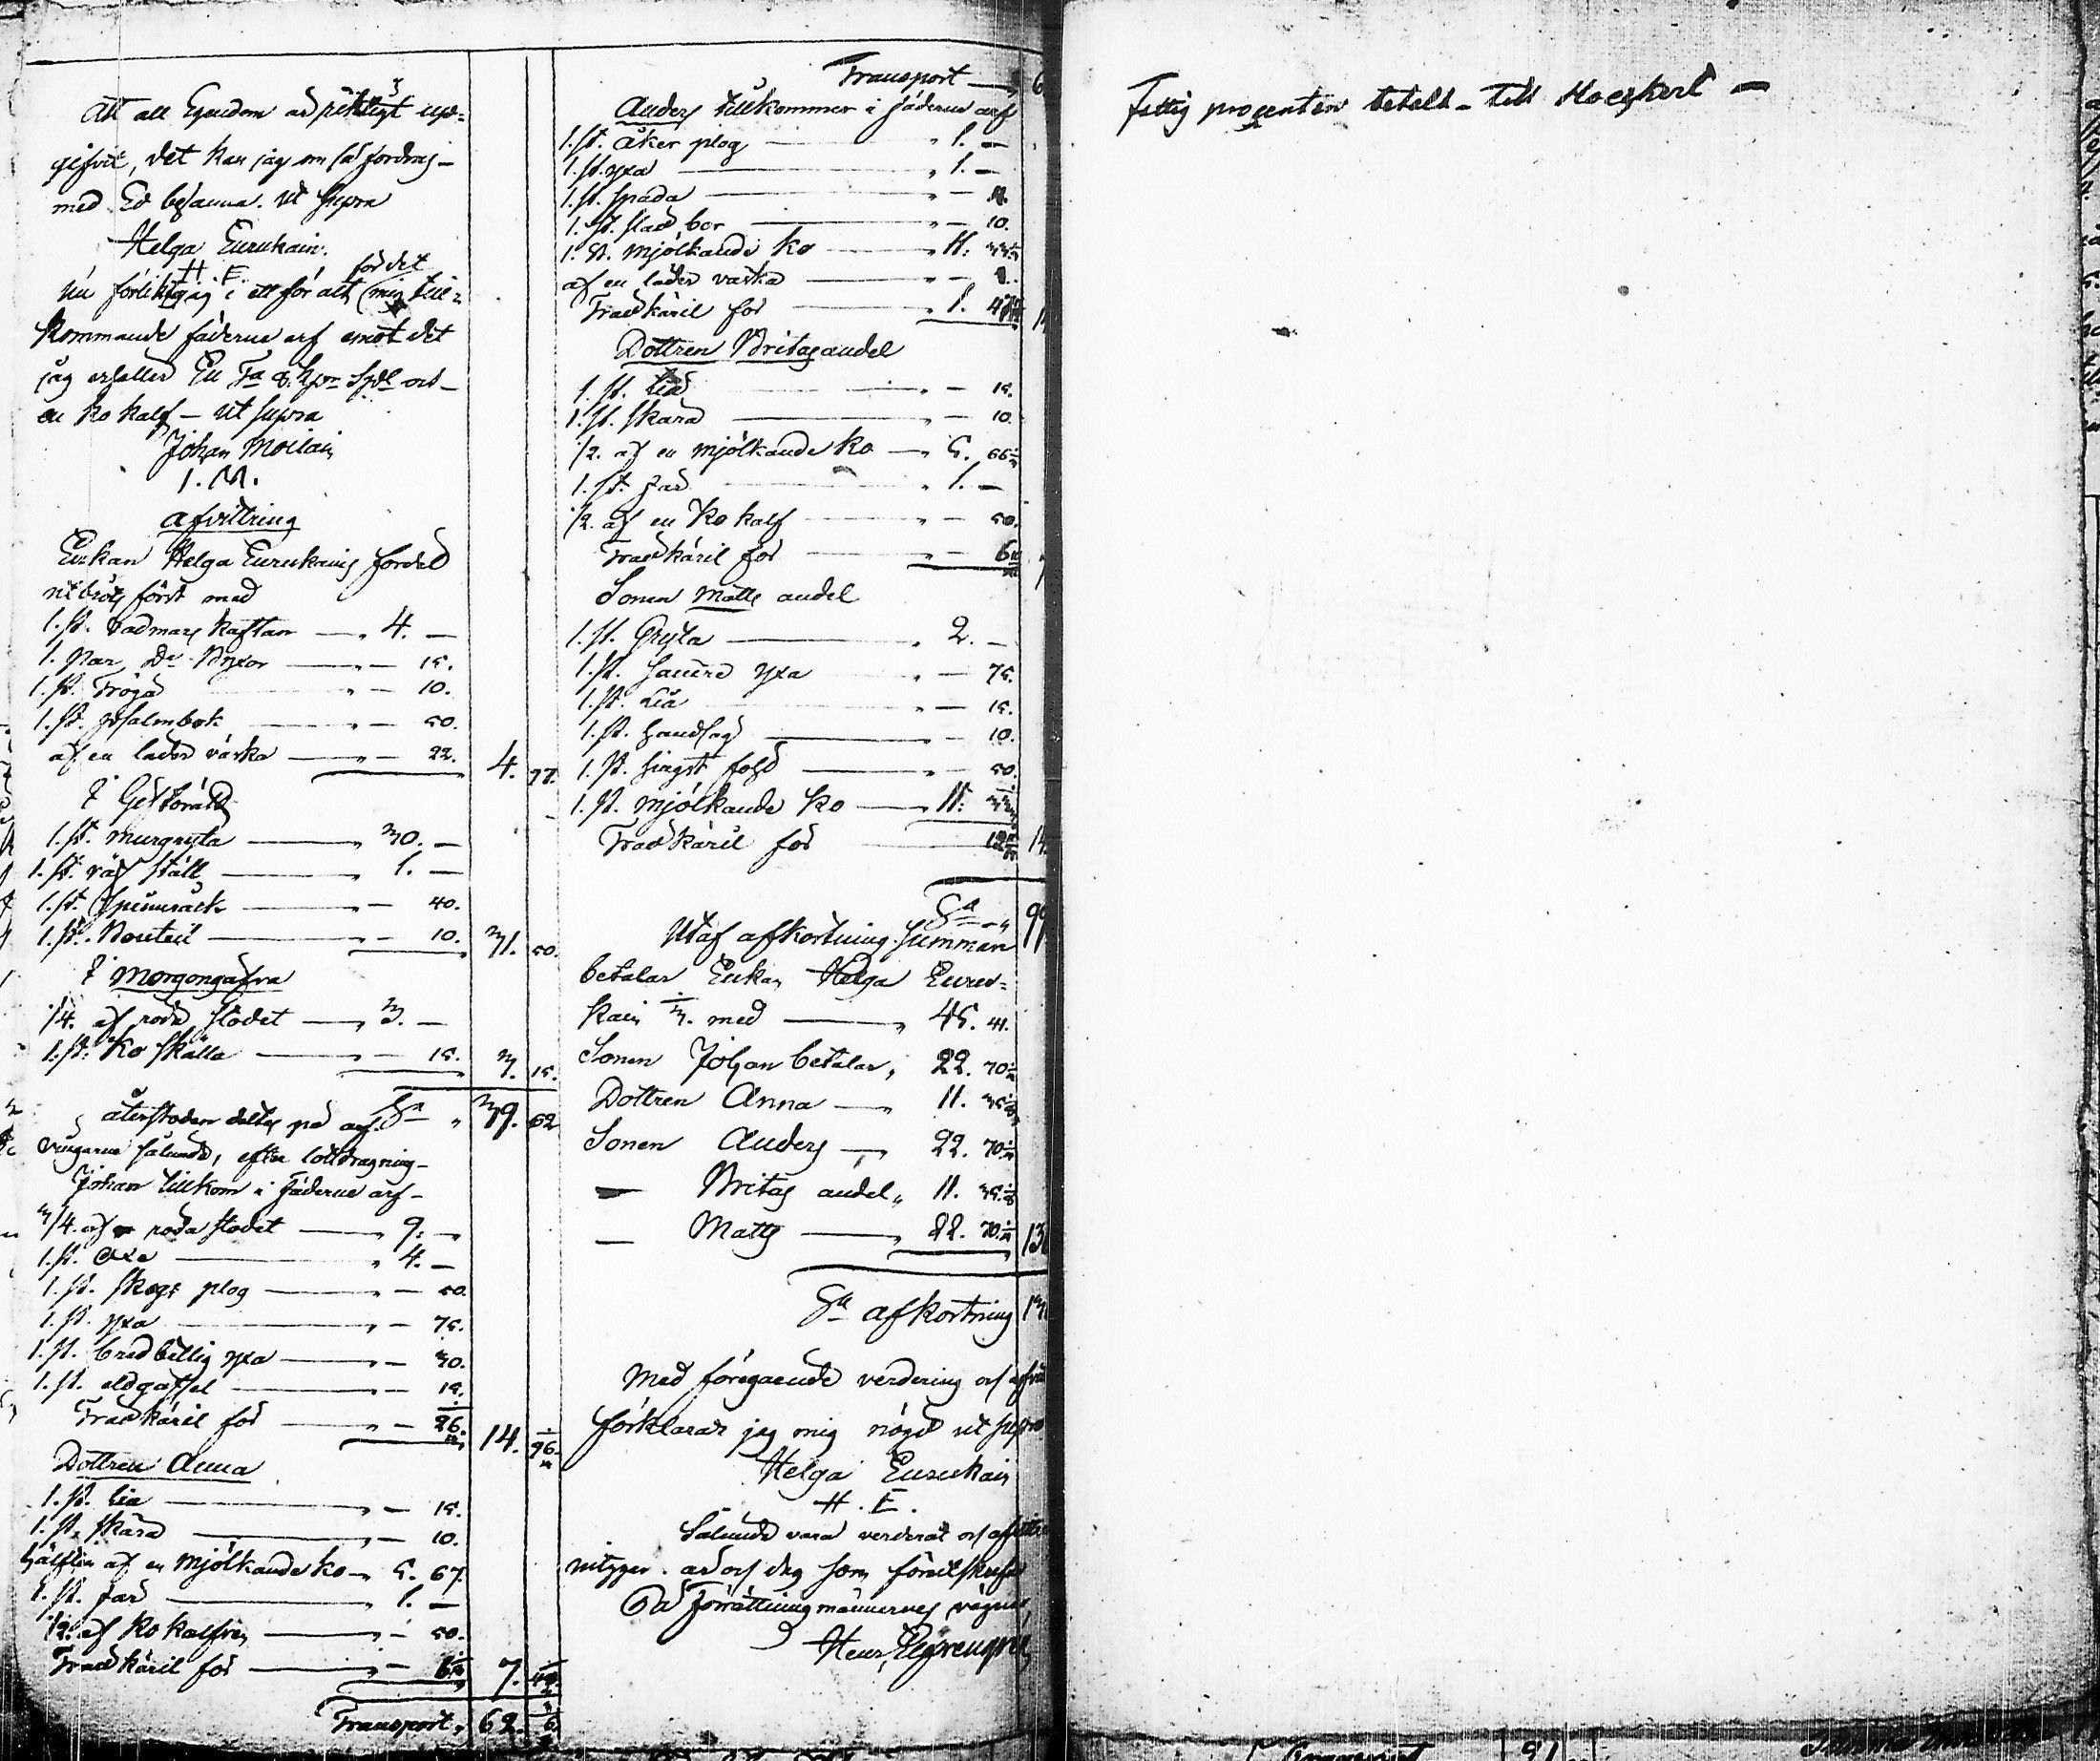 Att all Egendom är riktigt upp-
gifvit, det kan jag om så fordras
med Ed besanna. Ut supra
Helga Eurukain
H. E.
för det
Nu förlikte jag i ett för alt min till-
kommande fäderne arf emot det
jag erhåller En
en ko kalf — Ut supra
Johan Moilain
I. M.
Afvittring
Enkan Helga Eurukains fördel
utbröts först med
1. st. vadmars kaftan — 4. —
1. par, Do Byxor — 15.
1. st. Tröja — 10.
1. st. psalmbok — 50.
af en läder väska — 22. 4. 97.
1. st. murgryta — 30. —
1. st. väf ställ — 1. —
1. st. spinnråck — 40.
1. st. Bouteil — 10. 31. 50.
I Morgongåfva
1/4. af röda stodet — 3. —
1. st. Ko skälla — 15. 3. 15.
Sa 39. 62
återstoden deltes på arf-
vingarne sålunda, efter lottdragning
Johan tillkom i Fäderne arf
3/4. af röda stodet — 9. —
1. st. Oxe — 4. —
1. st. skogs plog — 50.
1. st. yxa — 75.
1. st. bredbillig yxa — 30.
1. st. eldgaffel — 15.
Trädkäril för — 26. 14. 96.
Dottren Anna
1. st. Lia — 15.
1. st. skära — 10.
hälften af en mjölkande ko — 5. 67.
1. st. får — 1. —
1/2. af ko kalfven — 50.
Trädkäril för — 7.
Transport, 62. 6.
Transport — 6
Anders tillkommer i fäderne arf
1. st. åker plog — 1. —
1. st. yxa — 1. —
1. st. spada —
1. st. bor — 10.
1. st. mjölkande ko — 11. 33
af en läder väska —
Trädkäril för — 1.
Dottren Britas andel
1. st. Lia — 15.
1. st. skära — 10.
1/2. af en mjölkande ko — 5. 66
1. st. får — 1. —
1/2. af en ko kalf — 50.
Trädkäril för — 6
Sonen Matts andel
1. st. Gryta — 2. —
1. st. yxa — 75.
1. st. Lia — 15.
1. st. handsåg — 10.
1. st. hingst fohl — 50.
1. st. mjölkande ko — 11. 33
Trädkäril för — 12
Sa 99
Utaf afkortning summan
betalar Enkan Helga Euru-
kain 1/3. med — 45. 41.
Sonen Johan betalar, 22. 70
Dottren Anna — 11. 35
Sonen Anders — 22. 70
— Britas andel, 11. 35
— Matts — 22. 70
Sa afkortning
Med föregående verdering och
förklarar jag mig nögd ut supra
Helga Eurukain
H. E.
Sålunda vara verderat och
intyger. år och dag som förutskrifvit
På Förrättningmännernes vägnar
Henr.
Fattig procenten betalt — till